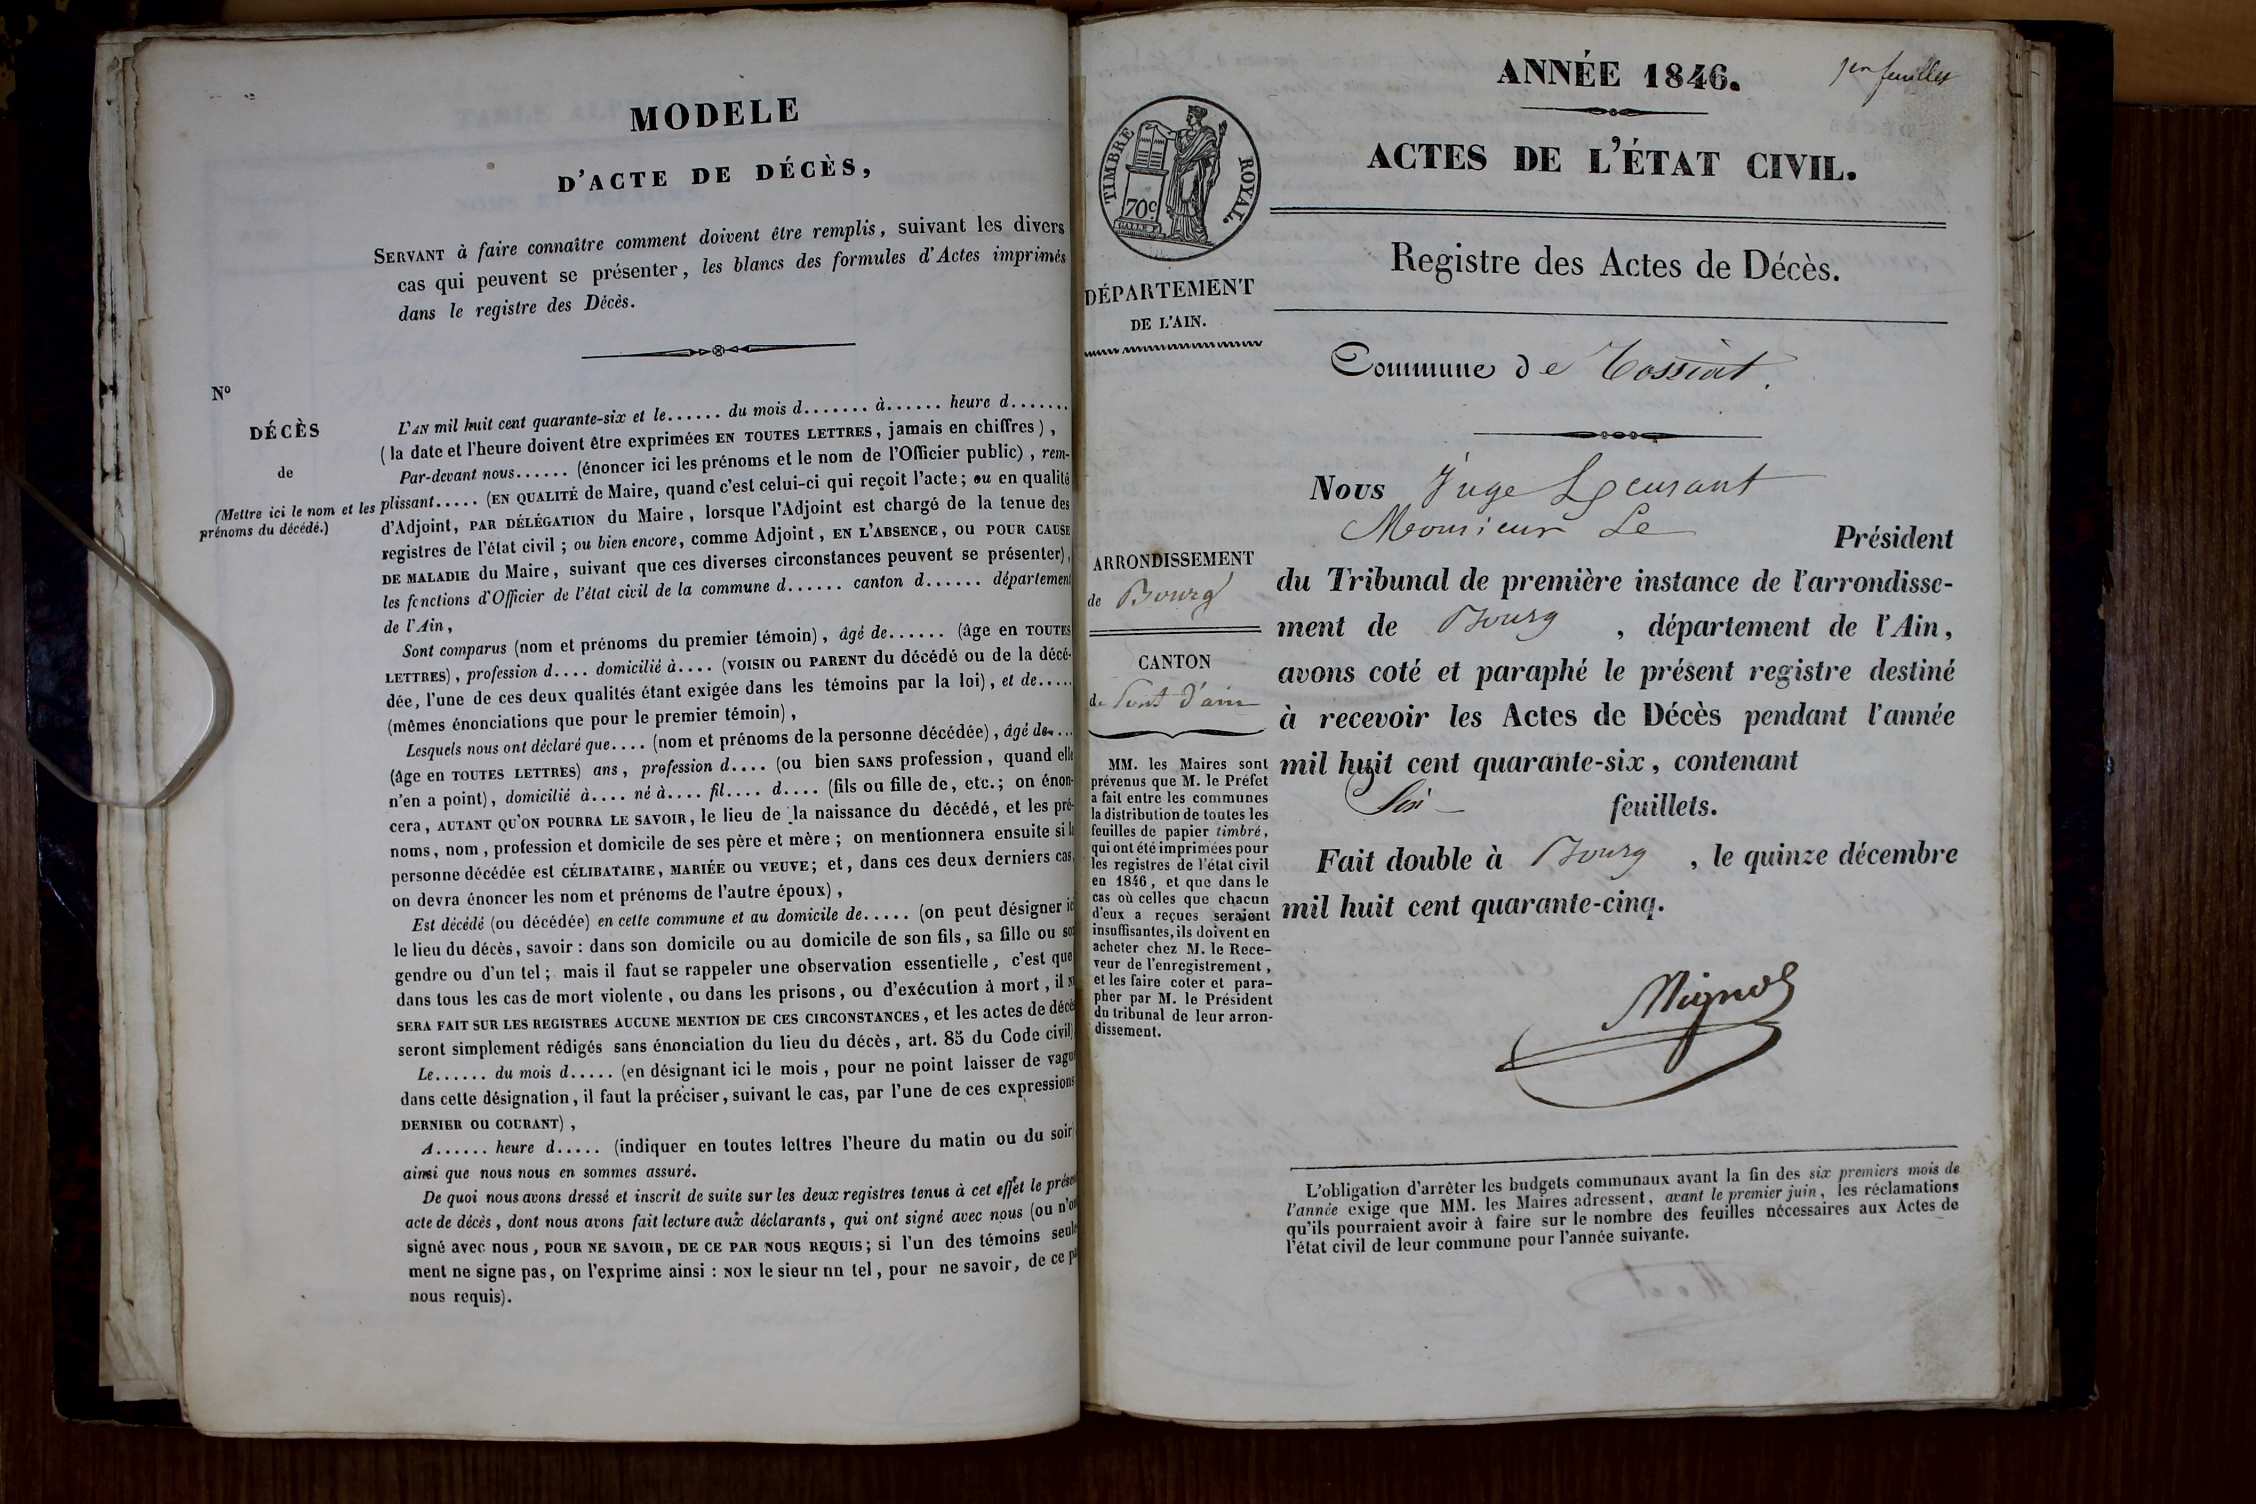 MODELE
D'ACTE DE DÉCÈS,
SERVANT à faire connaître comment doivent être remplis, suivant les divers
cas qui peuvent se présenter, les blancs des formules d'Actes imprimés
dans le registre des Décès.
N°
DÉCÈS
de
(Mettre ici le nom et les
prénoms du décédé.)
L'AN mil huit cent quarante-six et le...... du mois d....... à...... heure d.......
(la date et l'heure doivent être exprimées EN TOUTES LETTRES, jamais en chiffres),
Par-devant nous...... (énoncer ici les prénoms et le nom de l'Officier public), rem-
plissant..... (EN QUALITÉ de Maire, quand c'est celui-ci qui reçoit l'acte; ou en qualité
d'Adjoint, PAR DÉLÉGATION du Maire, lorsque l'Adjoint est chargé de la tenue des
registres de l'état civil; ou bien encore, comme Adjoint, EN L'ABSENCE, OU POUR CAUSE
DE MALADIE du Maire, suivant que ces diverses circonstances peuvent se présenter),
les fonctions d'Officier de l'état civil de la commune d...... canton d...... département
de l'Ain,
Sont comparus (nom et prénoms du premier témoin), âgé de...... (âge en TOUTES
LETTRES), profession d.... domicilié à.... (VOISIN OU PARENT du décédé ou de la décé-
dée, l'une de ces deux qualités étant exigée dans les témoins par la loi), et de.....
(mêmes énonciations que pour le premier témoin),
Lesquels nous ont déclaré que.... (nom et prénoms de la personne décédée), âgé de...
(âge en TOUTES LETTRES) ans, profession d.... (ou bien SANS profession, quand elle
n'en a point), domicilié à.... né à.... fil.... d.... (fils ou fille de, etc.; on énon-
cera, AUTANT QU'ON POURRA LE SAVOIR, le lieu de la naissance du décédé, et les pré-
noms, nom, profession et domicile de ses père et mère; on mentionnera ensuite si la
personne décédée est CÉLIBATAIRE, MARIÉE OU VEUVE; et, dans ces deux derniers cas,
on devra énoncer les nom et prénoms de l'autre époux),
Est décédé (ou décédée) en cette commune et au domicile de..... (on peut désigner ici
le lieu du décès, savoir: dans son domicile ou au domicile de son fils, sa fille ou son
gendre ou d'un tel; mais il faut se rappeler une observation essentielle, c'est que
dans tous les cas de mort violente, ou dans les prisons, ou d'exécution à mort, il N
SERA FAIT SUR LES REGISTRES AUCUNE MENTION DE CES CIRCONSTANCES, et les actes de décès
seront simplement rédigés sans énonciation du lieu du décès, art. 85 du Code civil)
Le...... du mois d..... (en désignant ici le mois, pour ne point laisser de vague
dans cette désignation, il faut la préciser, suivant le cas, par l'une de ces expressions
DERNIER OU COURANT),
A...... heure d..... (indiquer en toutes lettres l'heure du matin ou du soir)
ainsi que nous nous en sommes assuré.
De quoi nous avons dressé et inscrit de suite sur les deux registres tenus à cet effet le présent
acte de décès, dont nous avons fait lecture aux déclarants, qui ont signé avec nous (ou n'on
signé avec nous, POUR NE SAVOIR, DE CE PAR NOUS REQUIS; si l'un des témoins seule
ment ne signe pas, on l'exprime ainsi: NON le sieur un tel, pour ne savoir, de ce pa
nous requis).
ANNÉE 1846.
1er feuillet
ACTES DE L'ÉTAT CIVIL.
TIMBRE ROYAL.
70c
Registre des Actes de Décès.
DÉPARTEMENT
DE L'AIN.
Commune de Tossiat.
Nous Juge Locurant
Monsieur Le Président
du Tribunal de première instance de l'arrondisse-
ment de Bourg, département de l'Ain,
avons coté et paraphé le présent registre destiné
à recevoir les Actes de Décès pendant l'année
mil huit cent quarante-six, contenant
Six feuillets.
Fait double à Bourg, le quinze décembre
mil huit cent quarante-cinq.
Mignot
ARRONDISSEMENT
de Bourg
CANTON
de Pont d'ain
MM. les Maires sont
prévenus que M. le Préfet
a fait entre les communes
la distribution de toutes les
feuilles de papier timbré,
qui ont été imprimées pour
les registres de l'état civil
en 1846, et que dans le
cas où celles que chacun
d'eux a reçues seraient
insuffisantes, ils doivent en
acheter chez M. le Rece-
veur de l'enregistrement,
et les faire coter et para-
pher par M. le Président
du tribunal de leur arron-
dissement.
L'obligation d'arrêter les budgets communaux avant la fin des six premiers mois de
l'année exige que MM. les Maires adressent, avant le premier juin, les réclamations
qu'ils pourraient avoir à faire sur le nombre des feuilles nécessaires aux Actes de
l'état civil de leur commune pour l'année suivante.